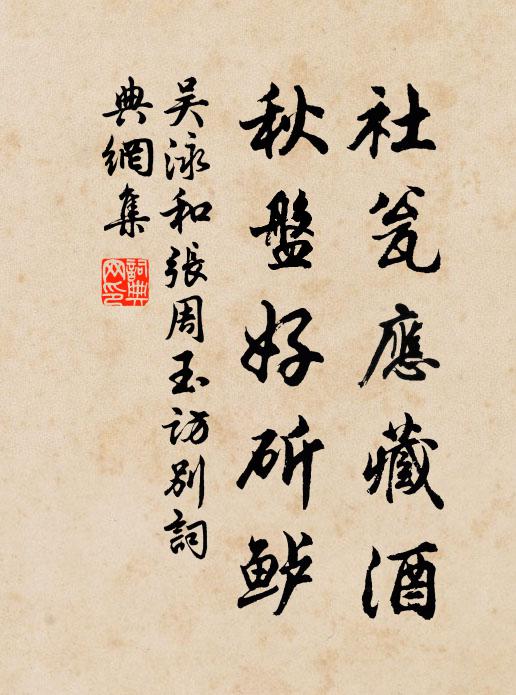 社瓮應藏酒
秋盤好斫鲈
吴泳和張周玉訪别詞
典網集
詞典网印